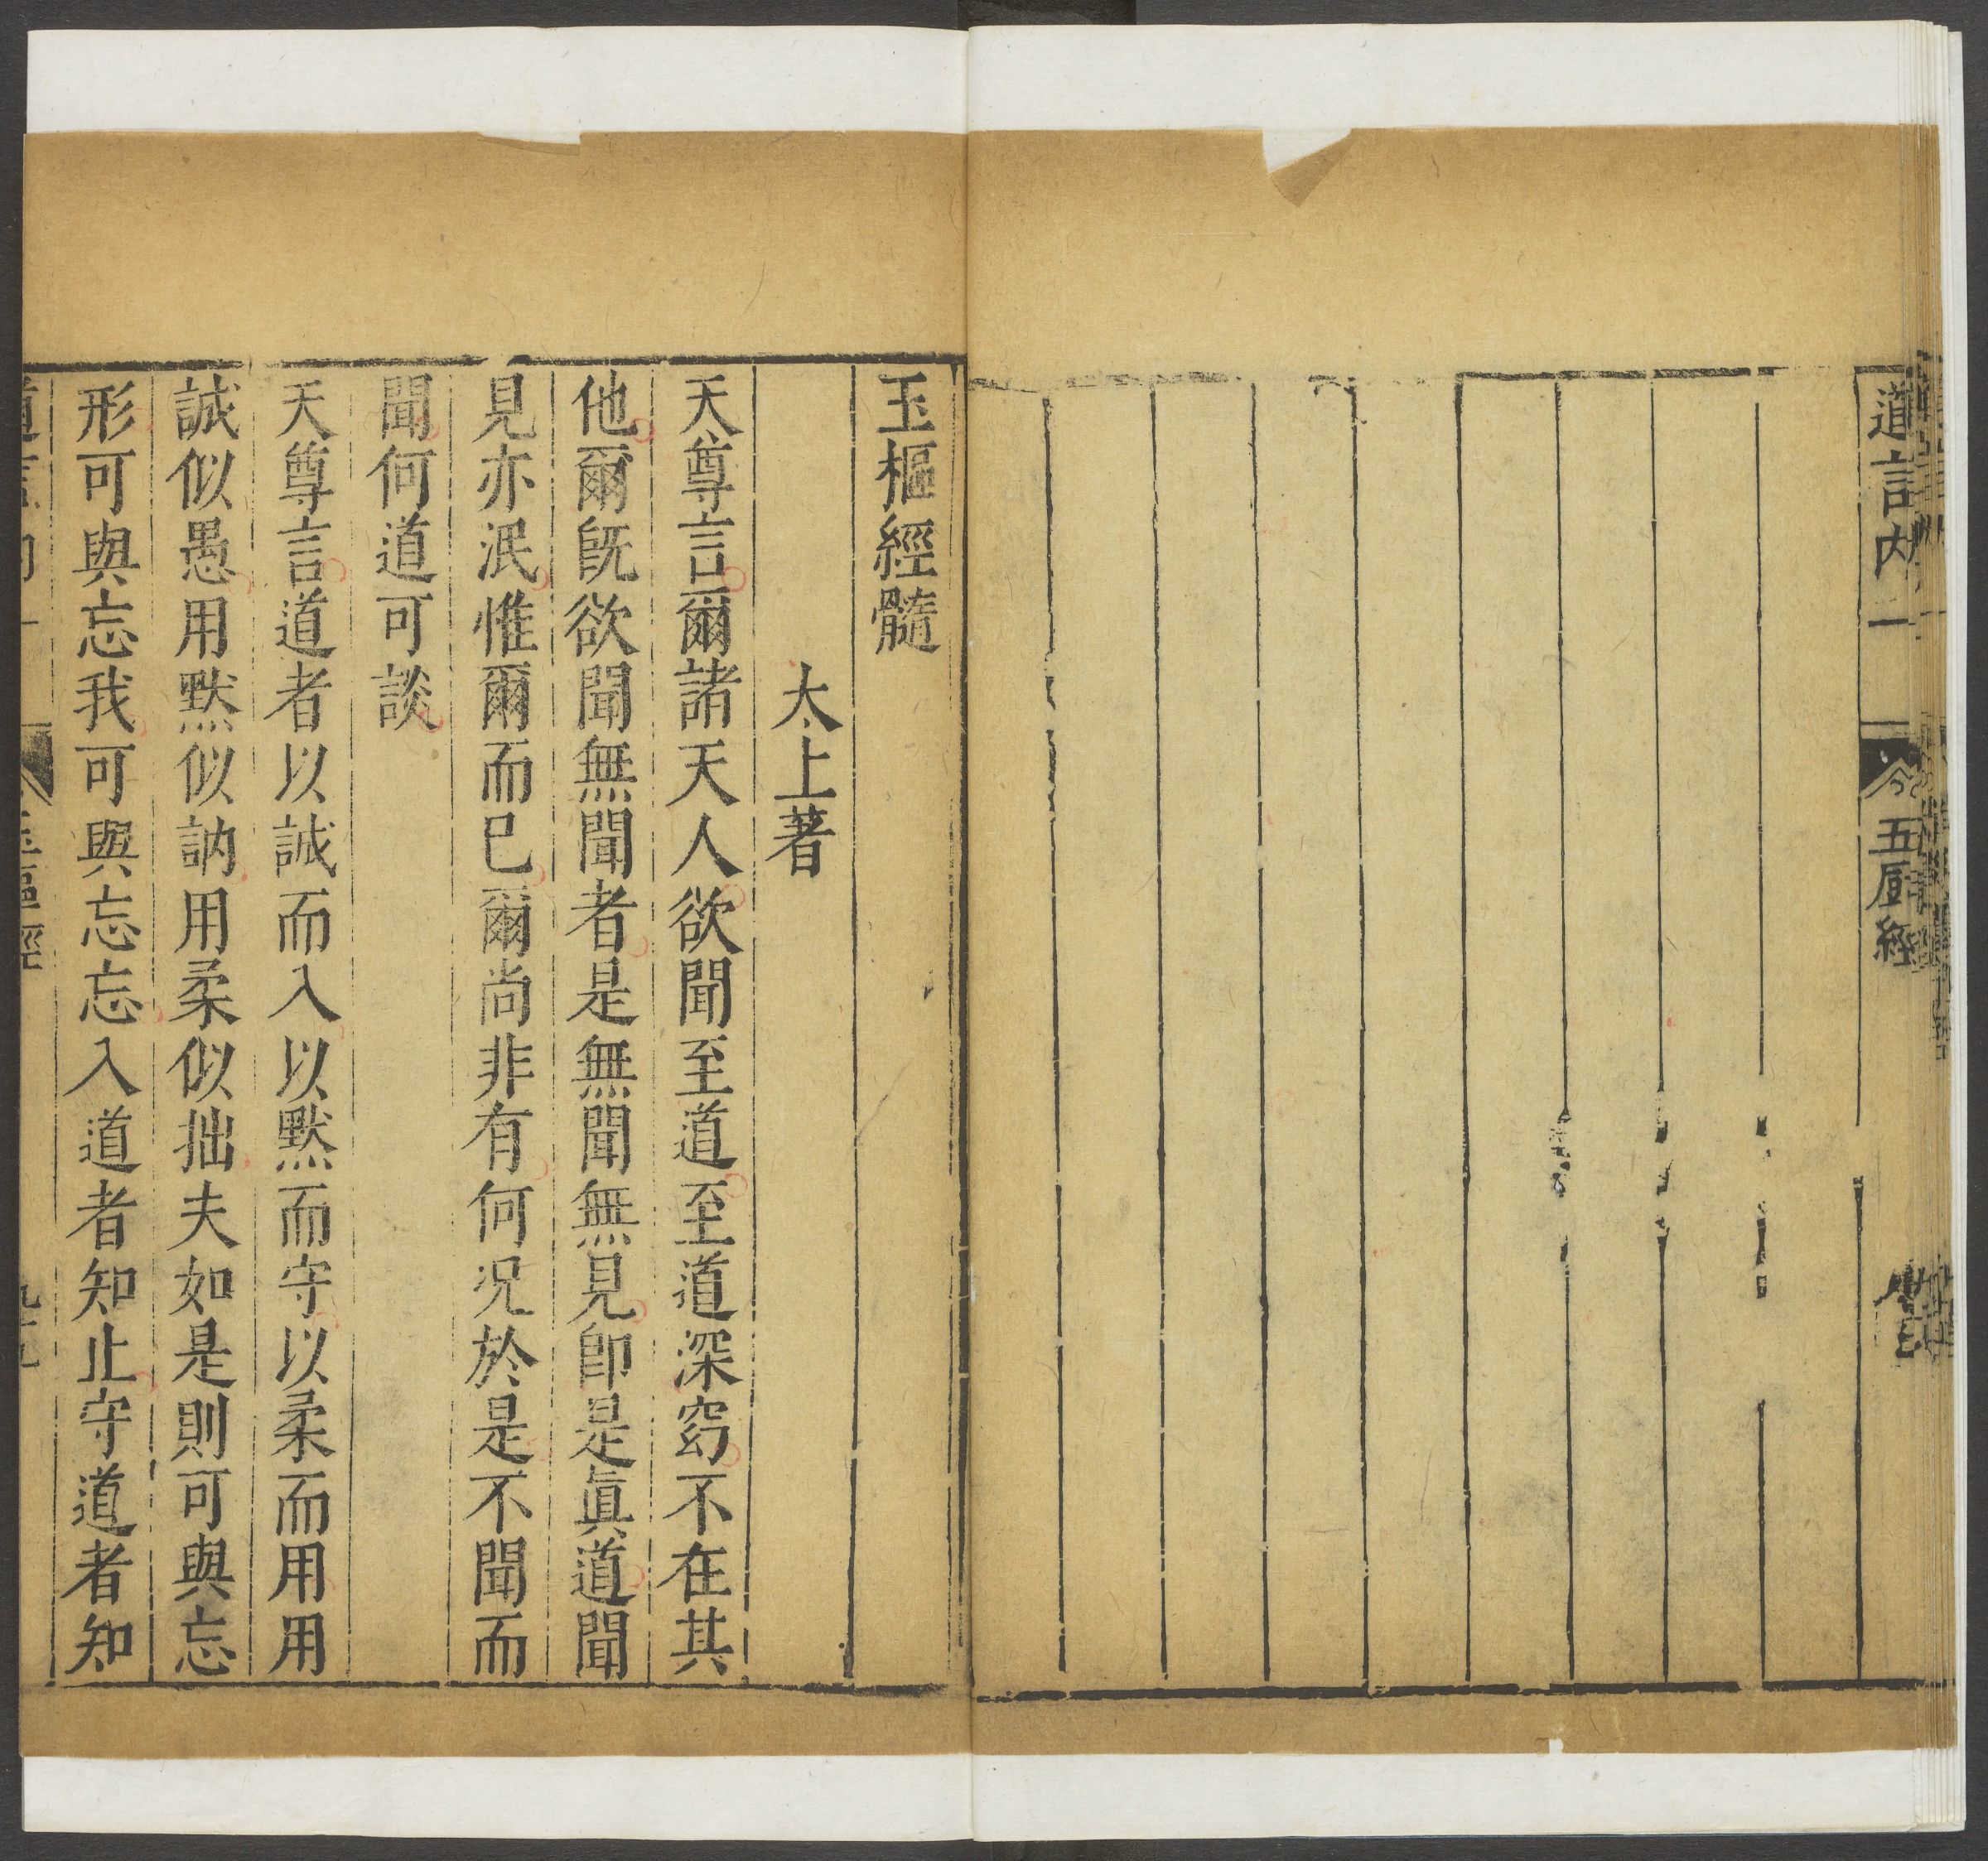 道言内一
五厨經
玉樞經髓
太上著
天尊言爾諸天人欲聞至道至道深窈不在其
他爾旣欲聞無聞者是無聞無見卽是眞道聞
見亦泯惟爾而已爾尚非有何况於是不聞而
聞何道可談
天尊言道者以誠而入以默而守以柔而用用
誠似愚用默似訥用柔似拙夫如是則可與忘
形可與忘我可與忘忘入道者知止守道者知